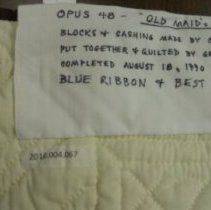 OPUS 48 - "OLD MAID'S
BLOCKS & SASHING MADE BY
PUT TOGETHER & QUILTED BY
COMPLETED AUGUST 18, 1990
BLUE RIBBON & BEST
2016.004.067